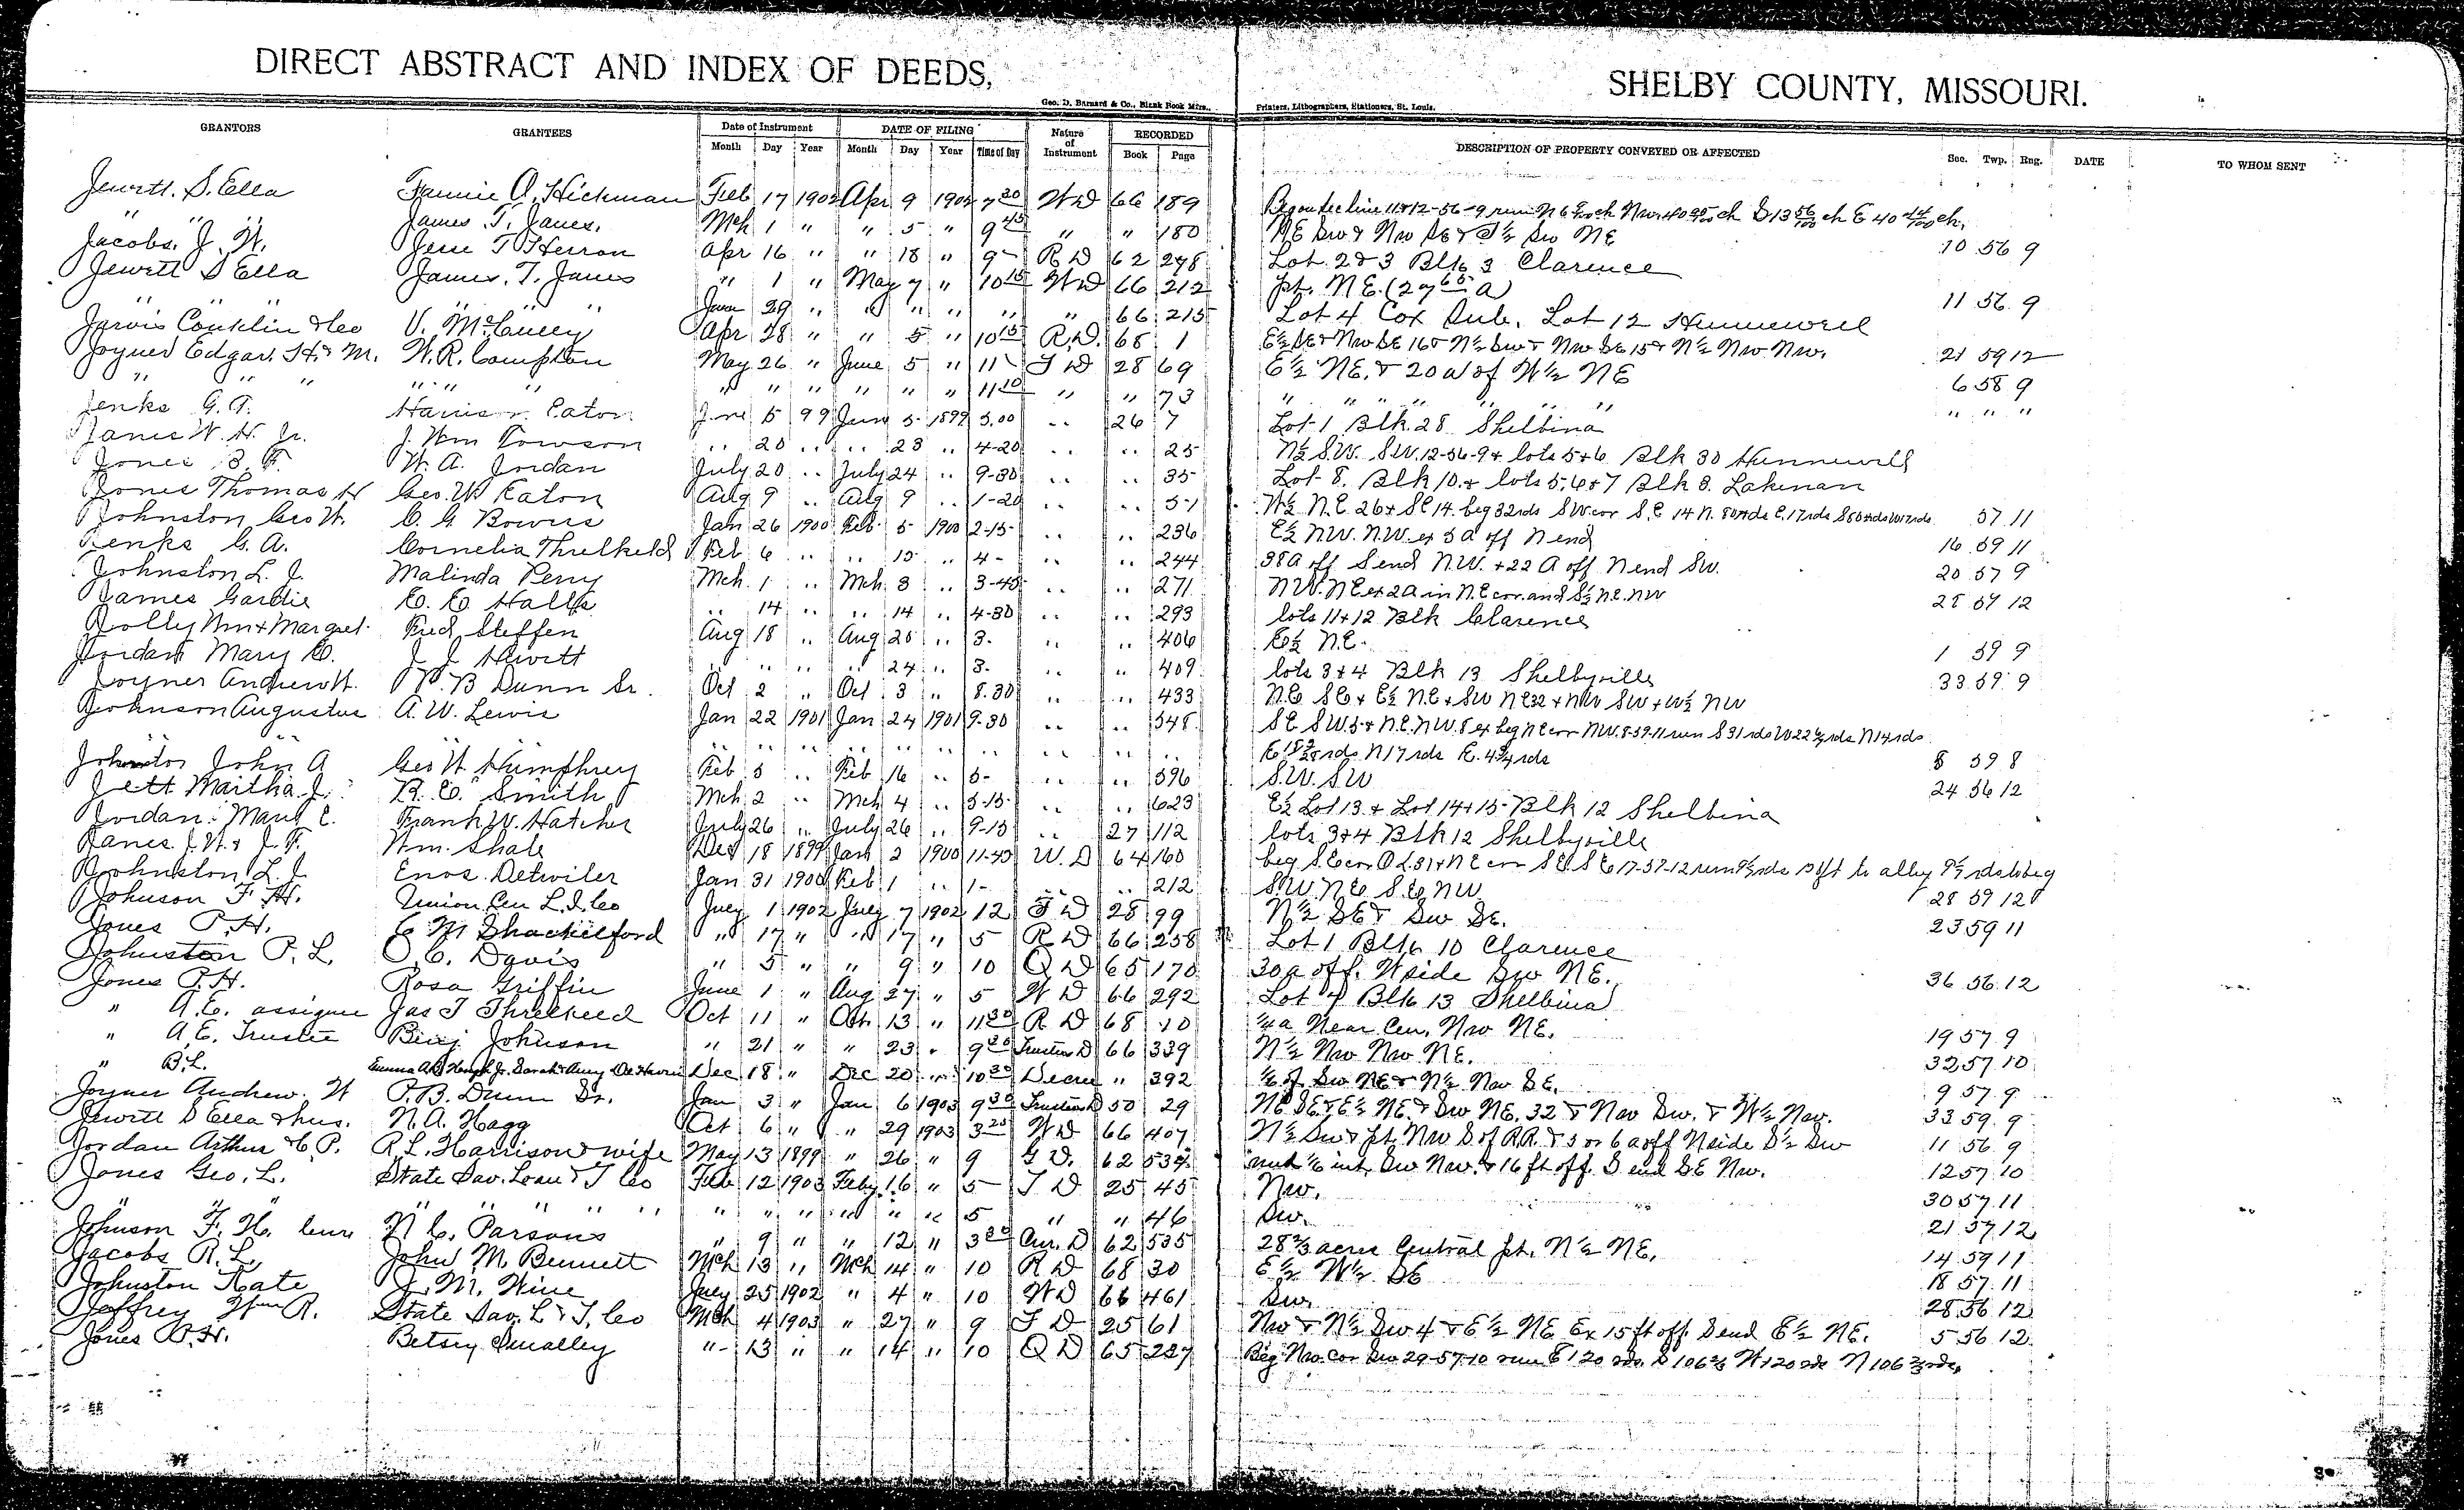 DIRECT ABSTRACT AND INDEX OF DEEDS, SHELBY COUNTY, MISSOURI.
Geo. D. Barnard & Co., Blank Book Mfrs., Printers, Lithographers, Stationers, St. Louis.
GRANTORS GRANTEES Date of Instrument DATE OF FILING Nature of Instrument RECORDED DESCRIPTION OF PROPERTY CONVEYED OR AFFECTED Sec. Twp. Rng. DATE TO WHOM SENT
Month Day Year Month Day Year Time of Day Book Page
Jewett. S. Ella Fannie A. Hickman Feb 17 1902 Apr 9 1902 7 30 WD 66 189 Beg on Sec line 11 & 12-56-9 run N 6 ch Nw 40 ch S 13 56/100 ch E 40 44/100 ch.
" " " James. T. Janes. Mch 1 " " 5 " 9 45 " " 180 NE Sw & Nw SE & S½ Sw NE 10 56 9
Jacobs. J. W. Jesse T Herron Apr 16 " " 18 " 9- R D 62 298 Lot 2 & 3 Blk 3 Clarence
Jewett S Ella James. T. Janes " 1 " May 7 " 10 15 WD 66 212 pt. NE. (27 65 a) 11 56 9
" " " " " " June 29 " " " " " " 66 215 Lot 4 Cox Sub. Lot 12 Hunnewell
Jarvis Conklin & Co V. McCulley Apr 28 " " 5 " 10 15 R.D. 68 1 E½ SE & Nw SE 16 & N½ Sw & Nw SE 15 & N½ Nw Nw. 21 59 12
Joyner Edgar. H. & M. W. R. Compton May 26 " June 5 " 11 T D 28 69 E½ NE. & 20 a of W½ NE 6 58 9
" " " " " " " " " " " " 11 10 " " 73 " " " " " " " " "
Jenks G. A. Harrison Eaton June 5 99 June 5 1899 5.00 .. 26 7 Lot 1 Blk. 28 Shelbina
Janes W. H. Jr. J. Wm Towson .. 20 .. .. 23 .. 4-20 .. .. 25 N½ S.W. S.W. 12-56-9 & lots 5+6 Blk 30 Hunnewell
Jones B. F. W. A. Jordan July 20 .. July 24 .. 9-30 .. .. 35 Lot 8. Blk 10. & lots 5, 6 & 7 Blk 8. Lakenan
Jones Thomas H Geo. W Eaton Aug 9 .. Aug 9 .. 1-20 .. .. 51 W½ N.E. 26 & S.E 14. beg 32rds SW cor S.E 14 N. 80rds E. 17rds S80rds W17rds 57 11
Johnston Geo W. C. G Bowers Jan 26 1900 Feb. 5 1900 2-15 .. .. 236 E½ NW. N.W. ex 5 a off N end 16 59 11
Jenks G. A. Cornelia Threlkeld Feb 6 .. .. 15 .. 4- .. .. 244 38a off S end N.W. + 22 A off N end SW. 20 57 9
Johnston L. J. Malinda Perry Mch. 1 .. Mch. 3 .. 3-45 .. .. 271 N.W. N.E ex 2A in N.E cor. and S½ N.E. NW 28 59 12
James Gardie E. E Halls .. 14 .. .. 14 .. 4-30 .. .. 293 lots 11+12 Blk Clarence
Jolly Wm + Margret Fred Steffen Aug 18 .. Aug 25 .. 3. .. .. 406 E½ N.E. 1 59 9
Jordan Mary E. J. J. Hewitt .. .. .. .. 24 .. 3. .. .. 409 lots 3+4 Blk 13 Shelbyville
Joyner Andrew H. P. B Dunn Sr. Oct 2 .. Oct 3 .. 8.30 .. .. 433 N.E SE + E½ N.E + SW NE 32 + NW SW + W½ NW 33 59 9
Johnson Augustus A. W. Lewis Jan 22 1901 Jan 24 1901 9-30 .. .. 548 S.E SW. 5 & N.E. N.W. 8 ex beg NE cor NW. 8-59-11 run S 31 rds W22½ rds N 14 rds
.. .. .. .. .. .. .. .. .. .. .. E 18 rds N 17 rds E. 4½ rds
Johnston John A Geo W. Humphrey Feb 5 .. Feb 16 .. 5- .. .. 596 S.W. SW 8 59 8
Jett Martha J. R. E. Smith Mch 2 .. Mch 4 .. 3-15 .. .. 623 E½ Lot 13 & Lot 14+15 Blk 12 Shelbina 24 56 12
Jordan Mary E. Frank W. Hatcher July 26 .. July 26 .. 9-15 .. 27 112 lots 3+4 Blk 12 Shelbyville
Janes J. W. & J. F. Wm. Shale Dec 18 1899 Jan 2 1900 11-45 W. D 64 160 beg S.E cor O.L. 31 + N.E cor S.E. S.E 17-57-12 run
Johnston L. J Enos. Detwiler Jan 31 1900 Feb 1 .. 1- .. .. 212 S.W. N.E S.E. N.W. 28 59 12
Johnson F. H. Union Cen L. I. Co July 1 1902 July 7 1902 12 T D 28 99 N½ SE & Sw SE. 23 59 11
Jones P. H. C. M. Shackelford " 17 " " 17 " 5 R D 66 258 Lot 1 Blk 10 Clarence
Johnston P. L. O. C. Davis " 5 " " 9 " 10 Q D 65 170 30a off. W side Sw NE. 36 56 12
Jones P. H. Rosa Griffin June 1 " Aug 27 " 5 W D 66 292 Lot 4 Blk 13 Shelbina
" A. E. assignee Jas T Threlkeld Oct 11 " Oct. 13 " 11 30 R D 68 10 ¼a Near Cen. Nw NE. 19 57 9
" A. E. Trustee Benj Johnson " 21 " " 23 " 9 20 Trustees D 66 339 N½ Nw Nw NE. 32 57 10
" B. L. Dec 18 " Dec 20 " 10 30 Decree " 392 ⅙ of Sw NE & N½ Nw SE. 9 57 9
Joyner Andrew. H P. B. Dunn Sr. Jan 3 " Jan 6 1903 9 30 Trustees D 50 29 NE SE & E½ NE. & Sw NE. 32 & Nw Sw. & W½ Nw. 33 59 9
Jewett S Ella & hus. N. A. Hagg Oct 6 " " 29 1903 3 25 WD 66 407 N½ Sw & pt. Nw S of R.R. & 5 or 6 a off N side S½ Sw 11 56 9
Jordan Arthur & C. P. R. L. Harrison & wife May 13 1899 " 26 " 9 G D. 62 534 und ⅙ int. Sw Nw. & 16 ft off. S end SE Nw. 12 57 10
Jones Geo. L. State Sav. Loan & T Co Feb 12 1903 Feby 16 " 5 T D 25 45 Nw. 30 57 11
" " " " " " " " " " " " 5 " " 46 Sw. 21 57 12
Johnson F. H. Cura N C. Parsons " 9 " " 12 " 3 30 Cur. D 62 535 28⅔ acres Central pt. N½ NE. 14 59 11
Jacobs R. L. John M Bennett Mch 13 " Mch 14 " 10 R D 68 30 E½ W½ SE 18 57 11
Johnston Kate J. M. Wine July 25 1902 " 4 " 10 WD 66 461 Sw. 28 56 12
Jeffrey Wm R. State Sav. L & T. Co Mch 4 1903 " 27 " 9 T D 25 61 Nw & N½ Sw 4 & E½ NE Ex 15 ft off. S end E½ NE. 5 56 12
Jones P. H. Betsey Smalley " 13 " " 14 " 10 Q D 65 227 Beg Nw. Cor Sw 29-57-10 run E 120 rds. S 106⅔ W 120 rds N 106⅔ rds.